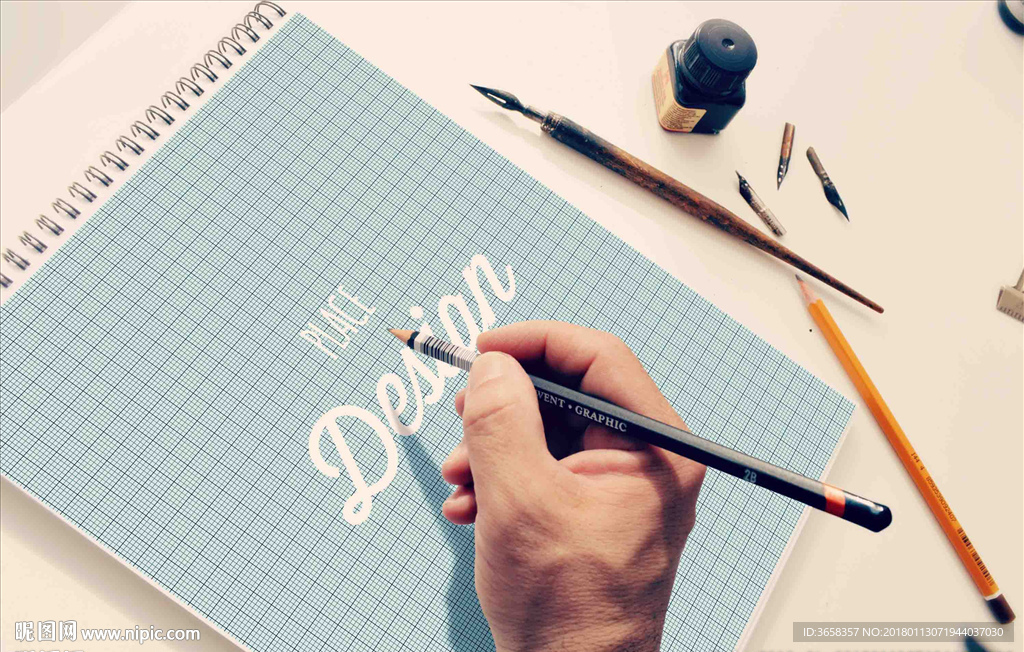 PLACE
Design
VENT • GRAPHIC
2B
昵图网 www.nipic.com
ID:3658357 NO:20180113071944037030